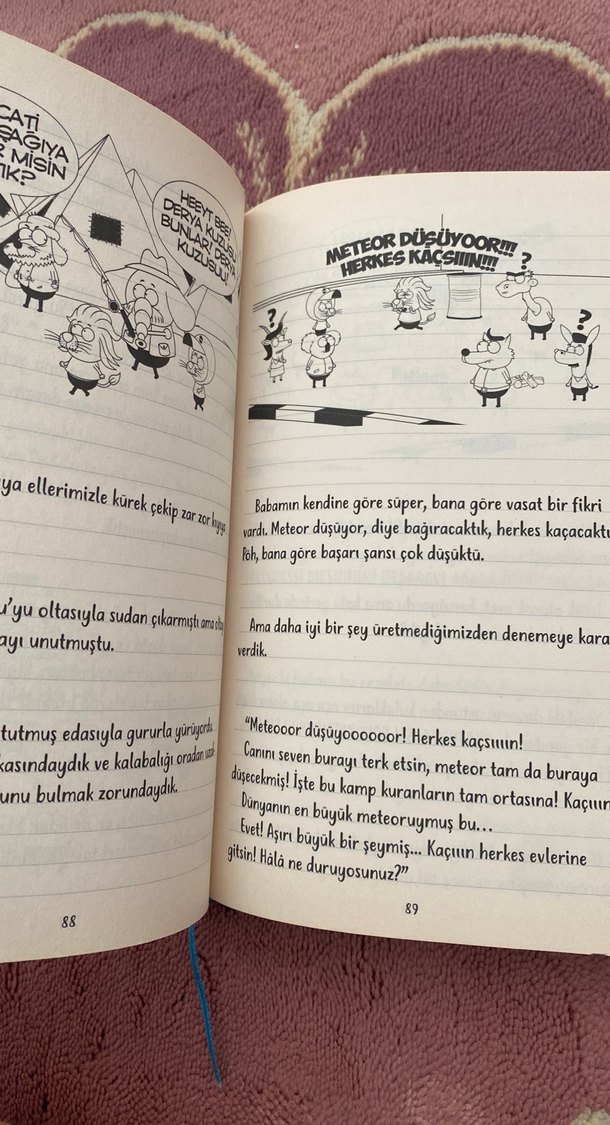 CATİ
ŞAĞIYA
MISIN
HEEYT BEE!
DERYA KUZUSU
BUNLAR, DERYA
KUZUSUU!
ya ellerimizle kürek çekip zar zor kıyıya
u'yu oltasıyla sudan çıkarmıştı ama
ayı unutmuştu.
tutmuş edasıyla gururla yürüyordu.
kasındaydık ve kalabalığı oradan
unu bulmak zorundaydık.
88
METEOR DÜŞÜYOOR!!!
HERKES KAÇSIIIN!!!
?
?
?
Babamın kendine göre süper, bana göre vasat bir fikri
vardı. Meteor düşüyor, diye bağıracaktık, herkes kaçacaktı
Pöh, bana göre başarı şansı çok düşüktü.
Ama daha iyi bir şey üretmediğimizden denemeye kara
verdik.
"Meteooor düşüyoooooor! Herkes kaçsıııın!
Canını seven burayı terk etsin, meteor tam da buraya
düşecekmiş! İşte bu kamp kuranların tam ortasına! Kaçııın
Dünyanın en büyük meteoruymuş bu...
Evet! Aşırı büyük bir şeymiş... Kaçıııın herkes evlerine
gitsin! Hâlâ ne duruyosunuz?"
89